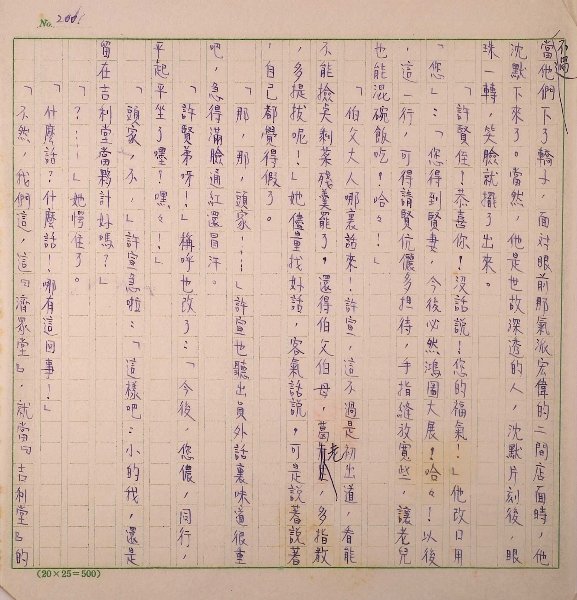 No. 2001
當他們下了轎子，面對眼前那氣派宏偉的二間店面時，他
沈默下來了。當然，他是世故深透的人，沈默片刻後，眼
珠一轉，笑臉就擺了出來。
「許賢侄？恭喜你？沒話說！您的福氣！」他改口用
「您」：「您得到賢妻，今後必然鴻圖大展！哈々！以後
，這一行，可得請賢伉儷多担待，手指縫放寬些，讓老兒
也能混碗飯吃？哈々！」
「伯父大人哪裏話來！許宣，這不過是初出道，看能
不能撿点剩菜殘羹罷了，還得伯父伯母，葛老，多指教
，多提拔呢！」她儘量找好話，客氣話說，可是說著說著
，自己都覺得假了。
「那，那，頭家……」許宣也聽出員外話裏味道很重
吧，急得滿臉通紅還冒汗。
「許賢弟呀！」稱呼也改了：「今後，您儂，同行，
平起平坐了嘿？嘿々！」
「頭家，不，」許宣急啦：「這樣吧：小的我，還是
留在吉利堂當夥計好嗎？」
「？……」她愕住了。
「什麼話？什麼話，哪有這回事！」
「不然，我們這，這『濟眾堂』，就當『吉利堂』的
(20×25=500)